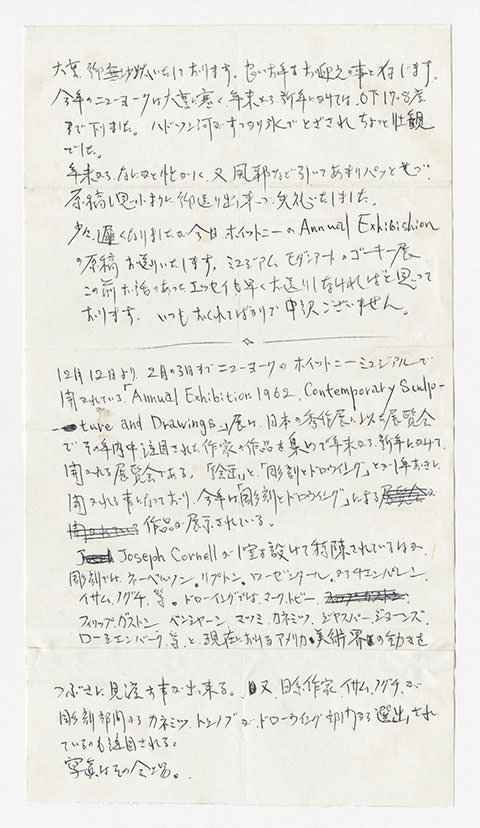 大変御無沙汰いたして居ります。良いお年をお迎えの事と存じます。
今年のニューヨークは大変に寒く年末から新年にかけては、0下17-8度
まで下りました。ハドソン河もすっかり氷でとざされちょっと壮観
でした。
年末からなにかと忙がしく、又風邪など引いてあまりパッとせず、
原稿も思ふように御送り出来ず失礼いたしました。
少々遅くなりましたが今日ホイットニーのAnnual Exhibishion
の原稿お送りいたします。ミュジアム モダンアートのゴーキー展
この前お話のあったエッセイも早くお送りしなければと思って
おります。いつもおくればかりで申訳ございません。
12月12日より2月の3日までニューヨークのホイットニーミュジアムで
開かれている「Annual Exhibition 1962, Contemporary Sculp-
ture and Drawings」展は、日本の秀作展に似た展覧会
でその年内中注目された作家の作品を集めて年末から新年にかけて
開かれる展覧会である。「絵画」と「彫刻とドロウイング」とが1年おきに
開かれる事になっており、今年は「彫刻とドロウイング」による
作品が展示されている。
Joseph Cornellが1室を設けて特陳されているほか、
彫刻では、ネーベルソン、リプトン、ローゼンタール、
イサム、ノグチ、等。ドローイングではマークトビー、
フィリップガストン ベンシャーン マツミ カネミツ、ジャスパージョーンズ、
ローシエンバーグ、等、と現在におけるアメリカ美術界の動きを
つぶさに見渡す事が出来る。又、日系作家イサム、ノグチが
彫刻部門から カネミツ、トシノブが ドローウイング部門から選出され
ているのも注目される。
写真はその会場。